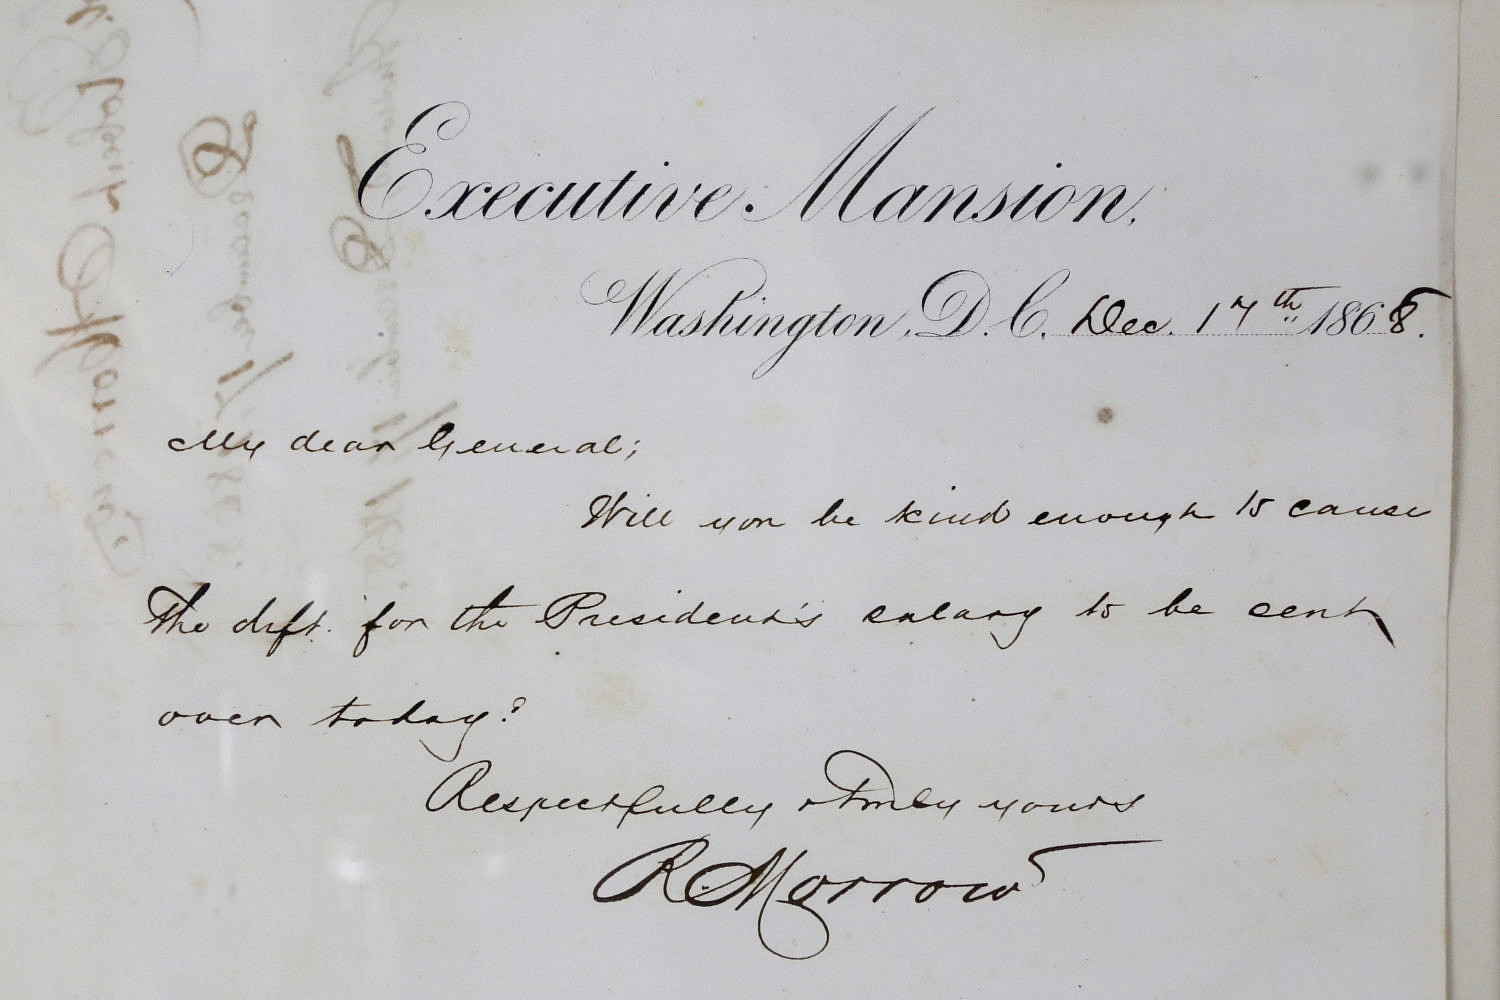 Executive Mansion,
Washington, D.C. Dec. 17th 1868.
My dear General;
Will you be kind enough to cause
the dft. for the President's salary to be sent
over today?
Respectfully & truly yours
R. Morrow